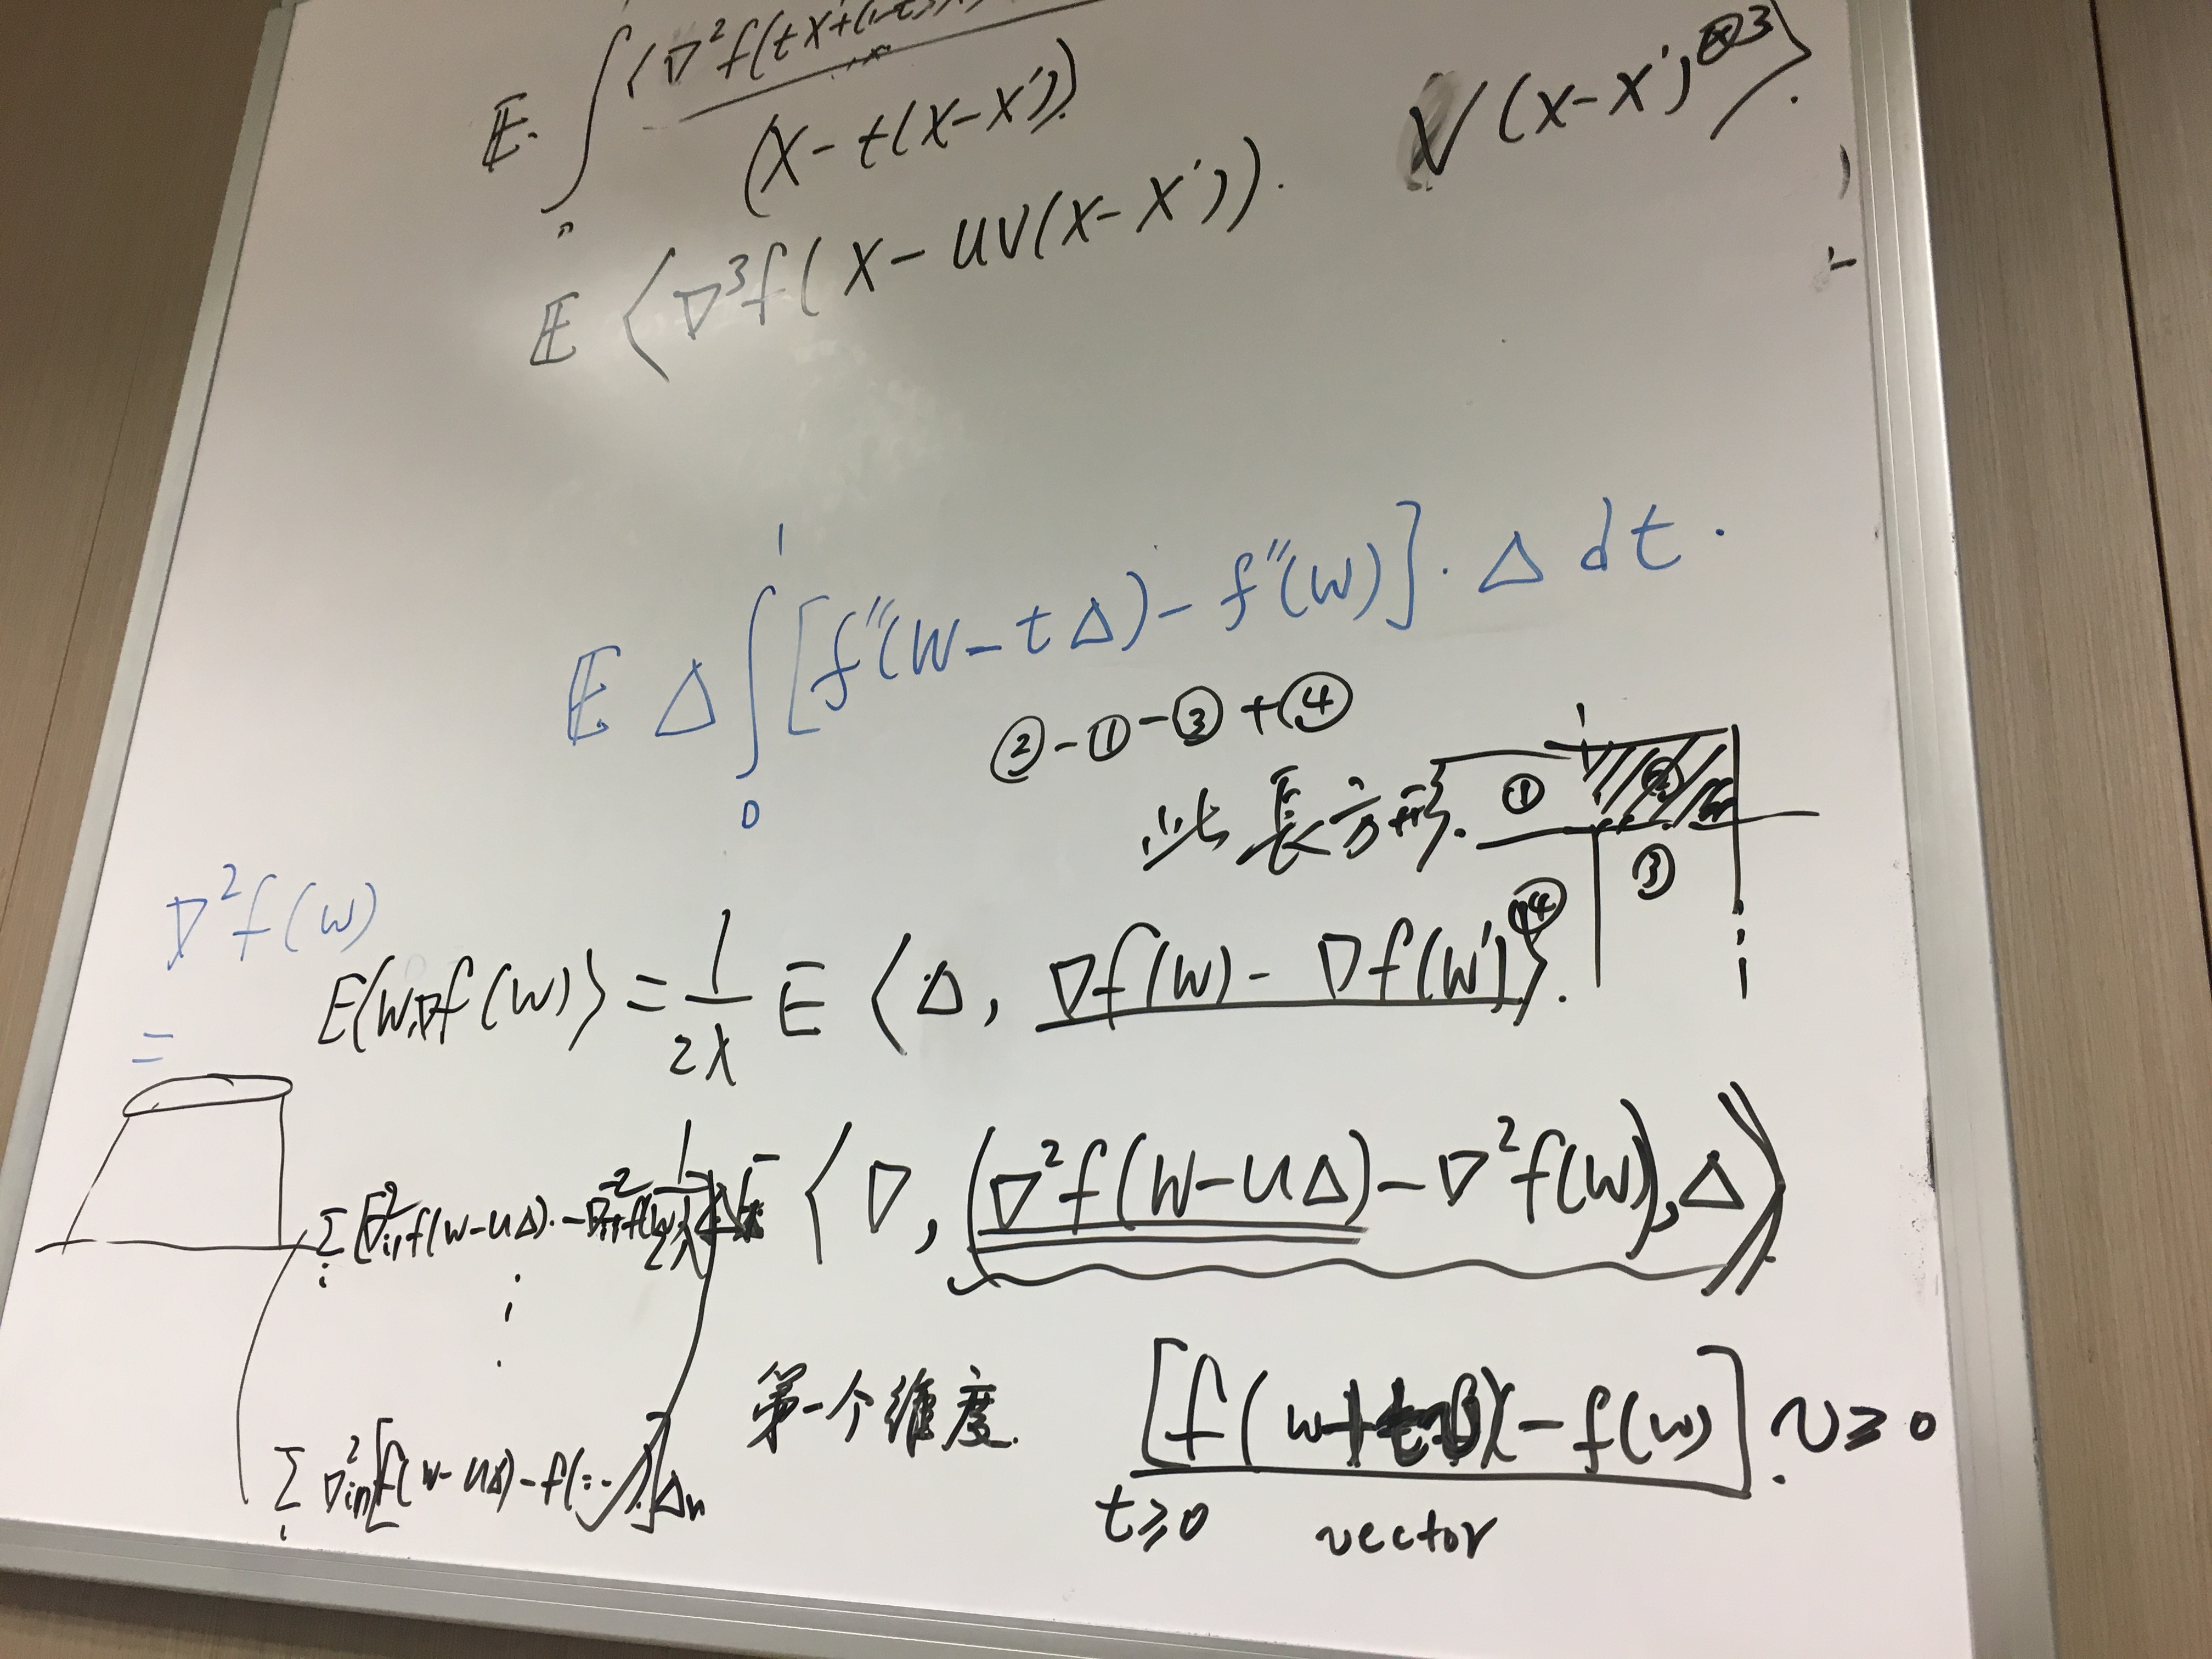 𝔼 ∫ ⟨∇²f(tX+(1-t)
(X-t(X-X')).
V(X-X')^{⊗3}⟩.
𝔼 ⟨∇³f(X-UV(X-X')).
𝔼 Δ ∫₀¹ [f''(W-tΔ)-f''(W)]·Δ dt.
②-①-③+④
此長方形.
① ②
③
④
i
i
∇²f(w)
=
E⟨W,∇f(W)⟩ = 1/2λ E ⟨Δ, ∇f(W)-∇f(W')⟩.
1/2λ ⟨∇, (∇²f(W-UΔ)-∇²f(W)),Δ⟩
Σ_i [∇²_{i1}f(W-UΔ)-∇²_{i1}f(W)
⋮
Σ_i ∇²_{in}[f(W-UΔ)-f(...)]Δn
第一个维度.
[f(w -f(w)]. v≥0
t≥0 vector